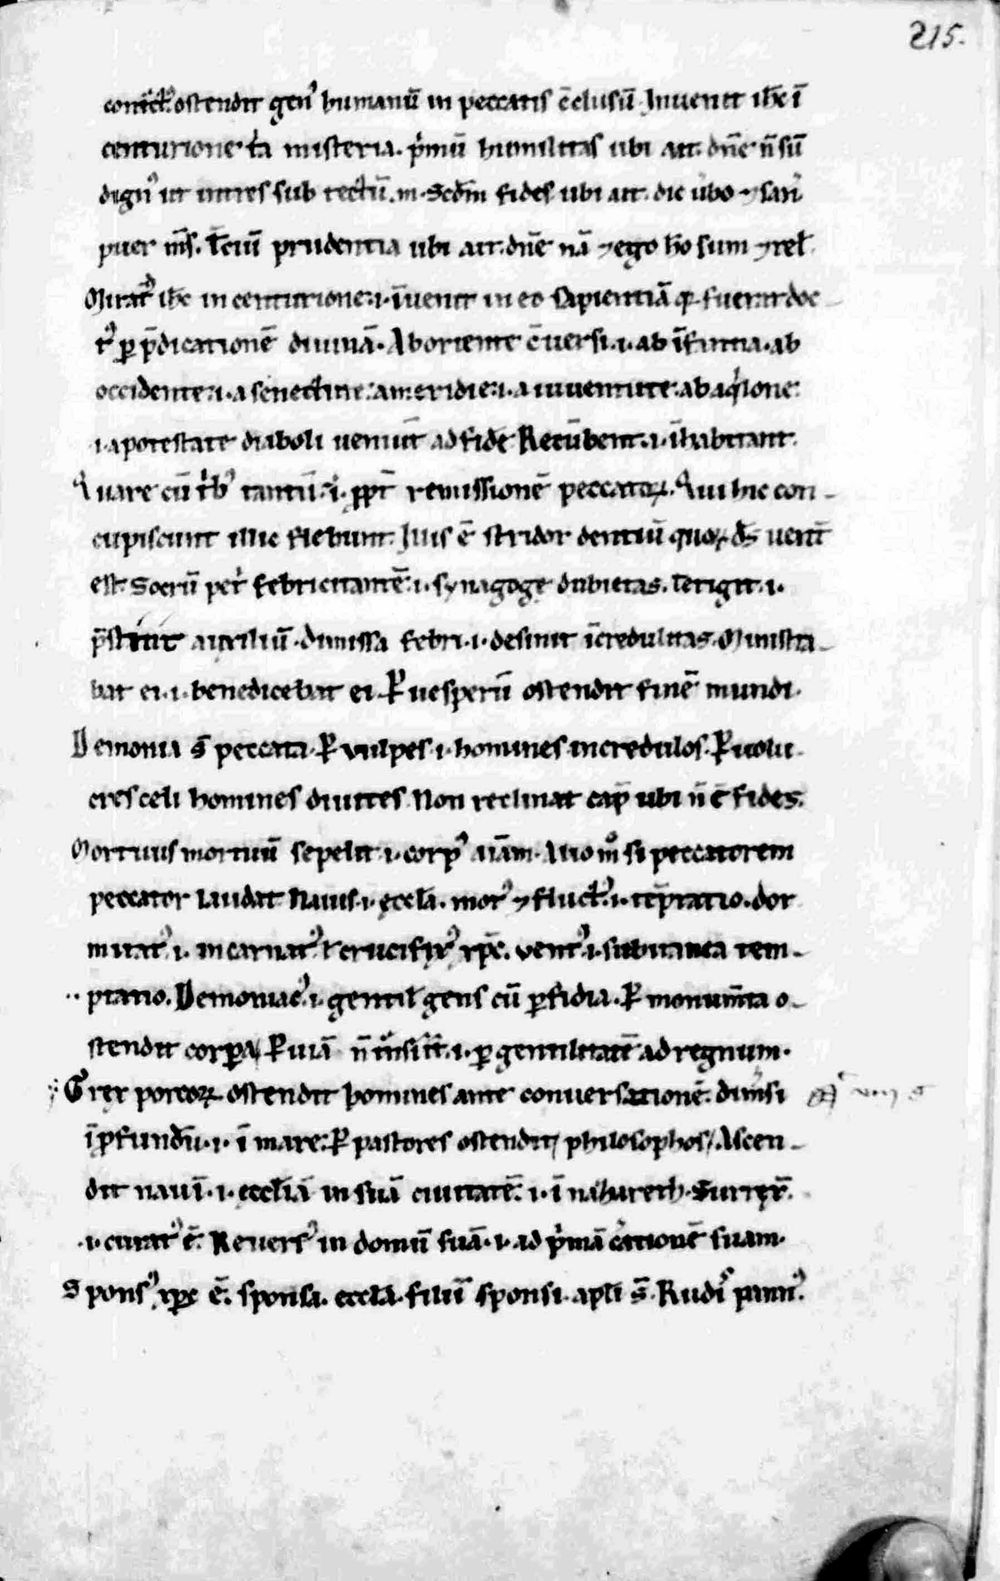 215.
ostendit gen᾽ humanū in peccatis c̄clusū. Inuenit ih̅c ī
centurione t̓a misteria. p̓mū humilitas ubi ait. dn̄e n̄ sū
dign᾽ ut intres sub tectū. m. Scd̄m fides ubi ait. dic u̓bo ⁊ san̓
puer m̄s. t̄ciū prudentia ubi ait. dn̄e nā ⁊ ego hō sum ⁊ rel̓.
Mirat᾽ ih̅c in centurione .i. īuenit in eo sapientiā q̄ fuerat doc
t᾽ ꝑ p̄dicationē diuinā. Ab oriente c̄uersi .i. ab īfantia. ab
occidente .i. a senectute. a meridie .i. a iuuentute. ab aq̓lone.
.i. a potestate diaboli ueniūt ad fidē Recūbent .i. īhabitant.
Quare cū t̓b᾽ tantū .i. ꝓpt̄ remissionē peccatoꝝ. Qui hic con-
cupiscunt illic flebunt. Illis ē stridor dentiū quoꝝ ds̄ uent̄
est. Socrū pet̓ febricitantē .i. synagogę dubietas. Tetigit .i.
p̄stitit auxiliū. dimissa febri .i. desinit īcredulitas. Ministra-
bat ei .i. benedicebat ei. P̄ uesperū ostendit finē mundi.
Demonia s̄ peccata. P̄ vulpes .i. homines incredulos. P̄ uolu-
cres celi homines diuites. Non reclinat cap̄ ubi n̄ ē fides.
Mortuus mortuū sepelit .i. corp᾽ aīam. Alio mº si peccatorem
peccator laudat Nauis .i. ęccl̄a. mot᾽ ⁊ fluct᾽ .i. tēptatio. dor
mitat᾽ .i. incarnat᾽ ł crucifix᾽ xp̄c. vent᾽ .i. subitanea tem-
ptatio. Demoniac᾽ .i. gentil̓ gens cū ꝑfidia. P̄ monum̄ta o-
stendit corpora P̄ uiā n̄ .i. ꝑ gentilitatē ad regnum.
Grex porcoꝝ ostendit homines ante conuersationē. dim̄si
ī ꝓfundū .i. ī mare. P̄ pastores ostendit philosophos. Ascen-
dit nauī .i. eccl̄iā in suā ciuitatē .i. ī nazareth. Surrex̄.
.i. curat᾽ ē. Reuers᾽ in domū suā .i. ad p̓mā c̓ationē suam.
Spons᾽ xp̄c ē. sponsa. eccl̄a. filiū sponsi. apl̄i s̄. Rudi᾽ pann᾽.